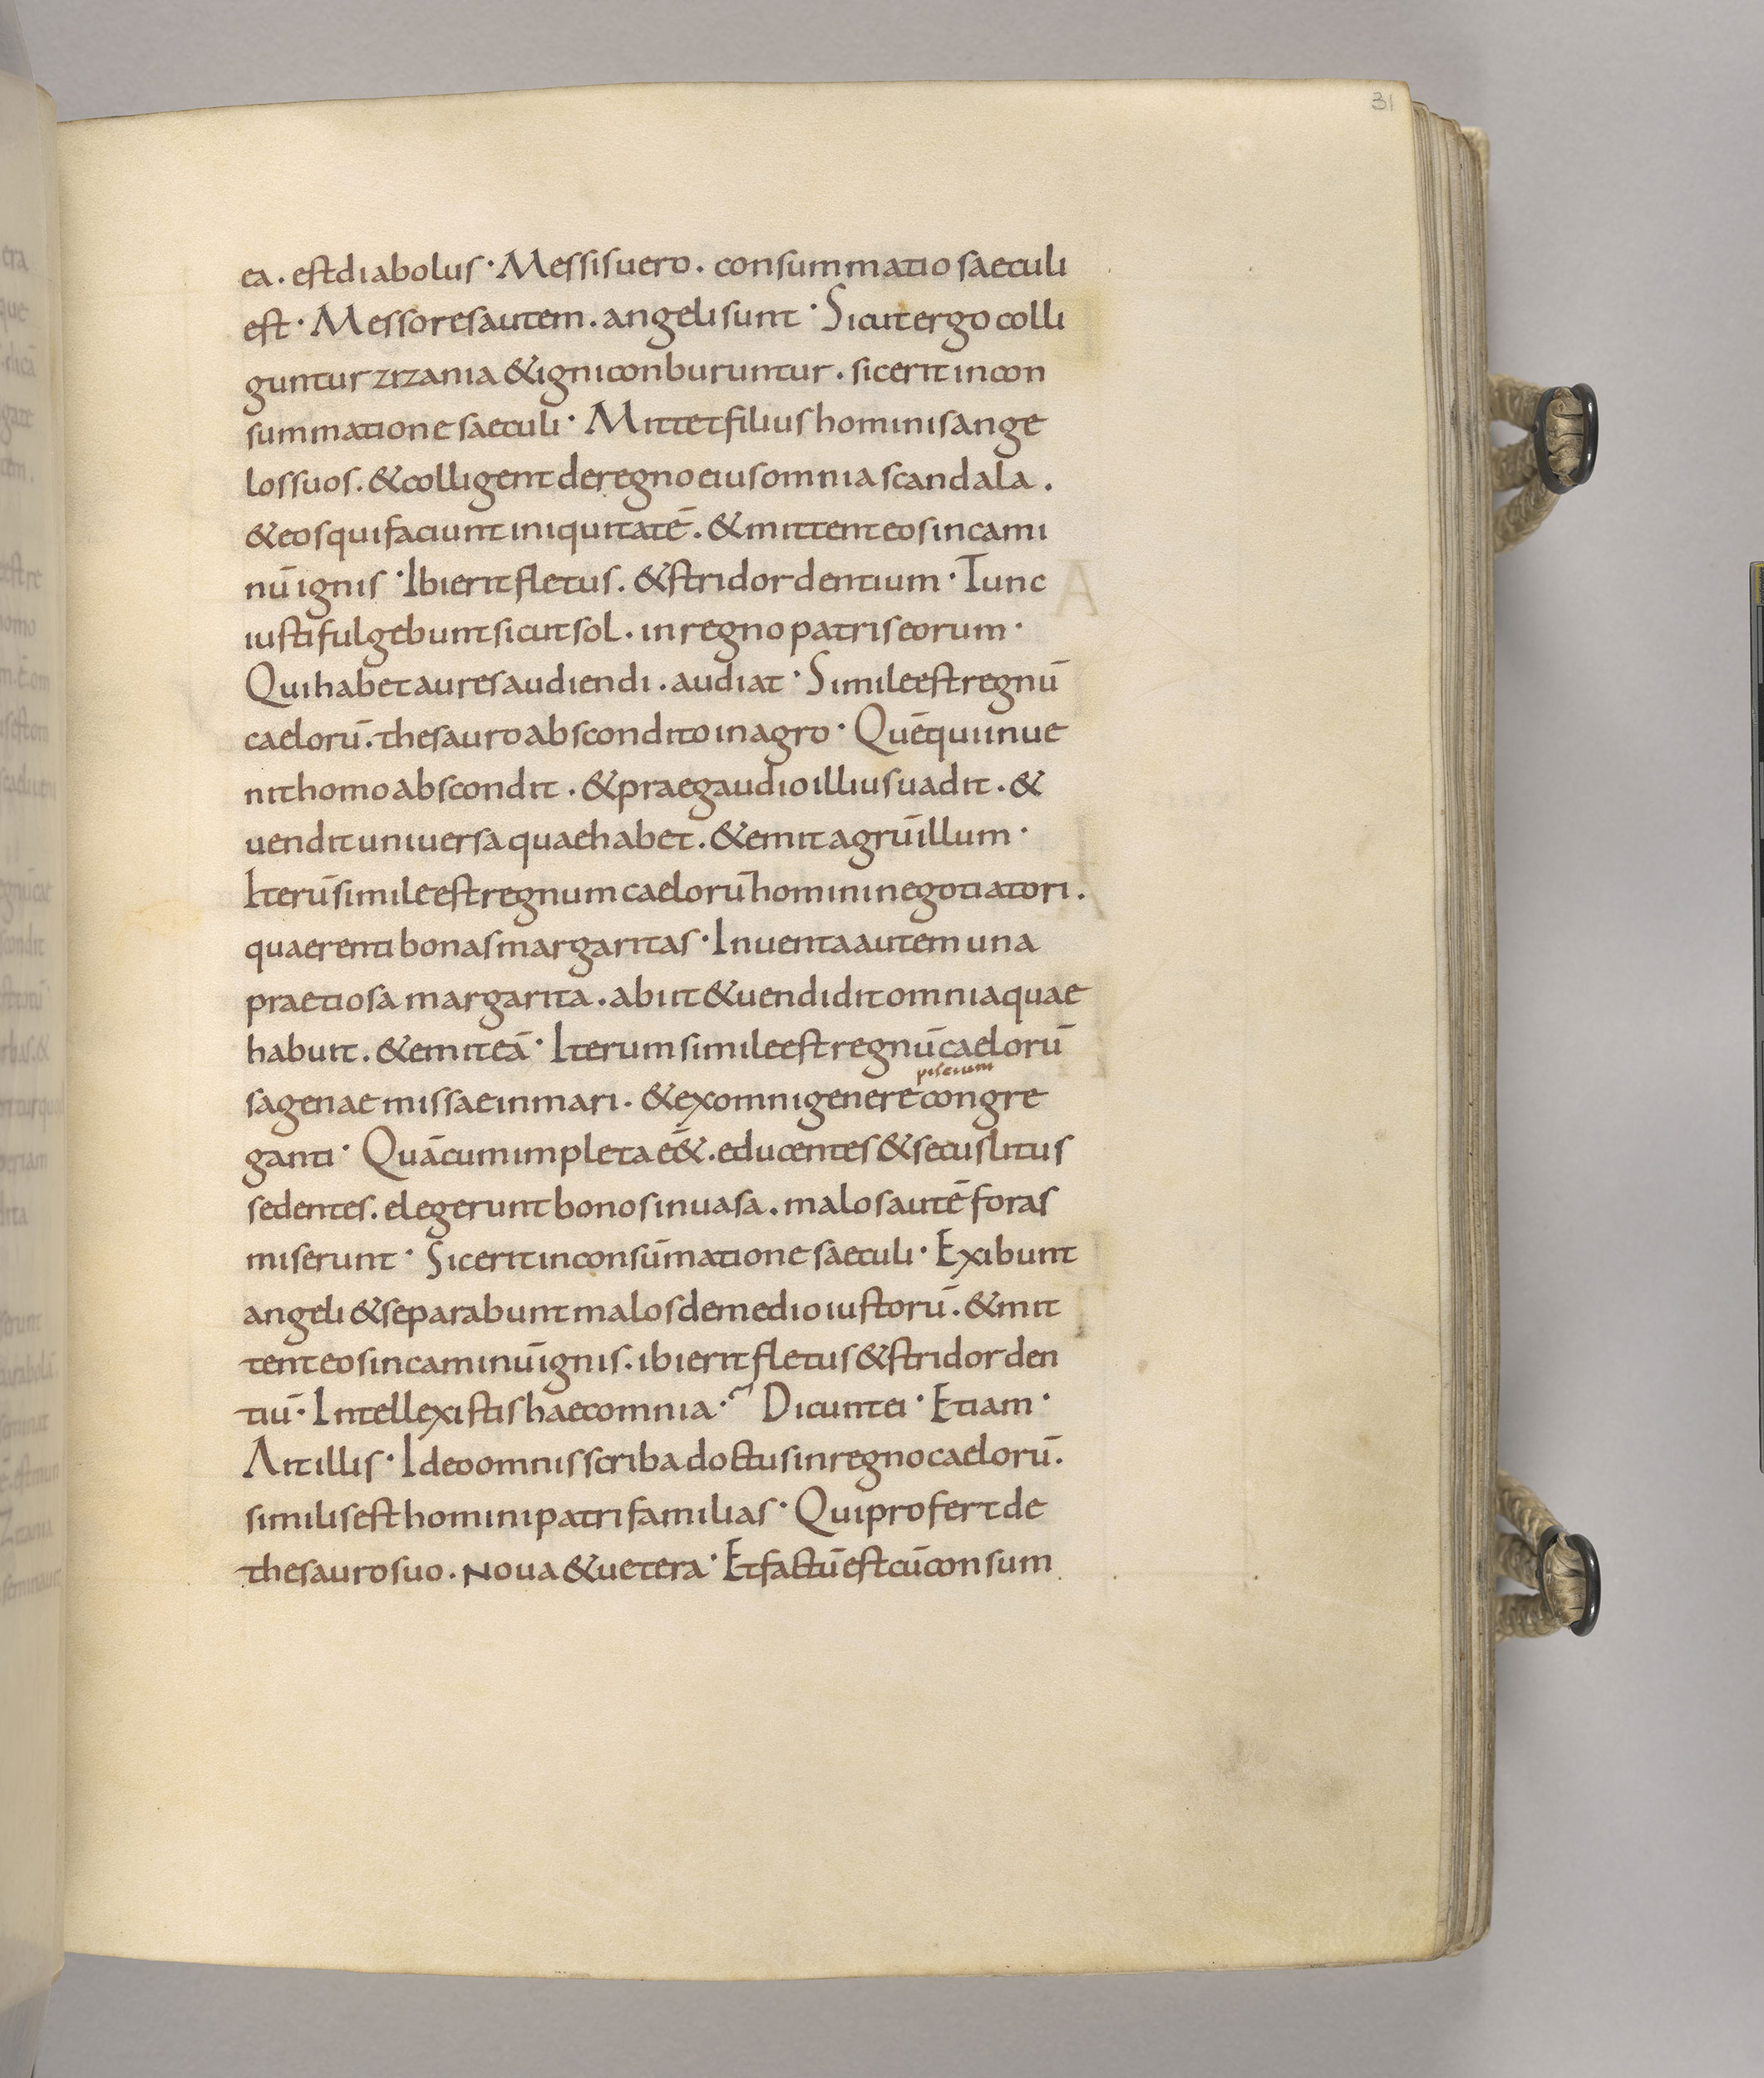 31
ea. est diabolus· Messis uero. consummatio saeculi
est· Messores autem. angeli sunt· Sicut ergo colli
guntur zizania & igni conburuntur. sic erit in con
summatione saeculi· Mittet filius hominis ange
los suos. & colligent de regno eius omnia scandala.
& eos qui faciunt iniquitatē. & mittent eos in cami
nū ignis· Ibi erit fletus. & stridor dentium· Tunc
iusti fulgebunt sicut sol. in regno patris eorum·
Qui habet aures audiendi. audiat· Simile est regnū
caelorū. thesauro abscondito in agro· Quē qui inue
nit homo abscondit. & prae gaudio illius uadit. &
uendit uniuersa quae habet. & emit agrū illum·
Iterū simile est regnum caelorū homini negotiatori.
quaerenti bonas margaritas· Inuenta autem una
praetiosa margarita. abiit & uendidit omnia quae
habuit. & emit eā· Iterum simile est regnū caelorū
piscium
sagenae missae in mari. & ex omni genere congre
ganti· Quā cum impleta eēt. educentes & secus litus
sedentes. elegerunt bonos in uasa. malos autē foras
miserunt· Sic erit in consūmatione saeculi· Exibunt
angeli & separabunt malos de medio iustorū. & mit
tent eos in caminū ignis. ibi erit fletus & stridor den
tiū· Intellexistis haec omnia·? Dicunt ei· Etiam·
Ait illis· Ideo omnis scriba doctus in regno caelorū.
similis est homini patri familias· Qui profert de
thesauro suo. Noua & uetera· Et factū est cū consum